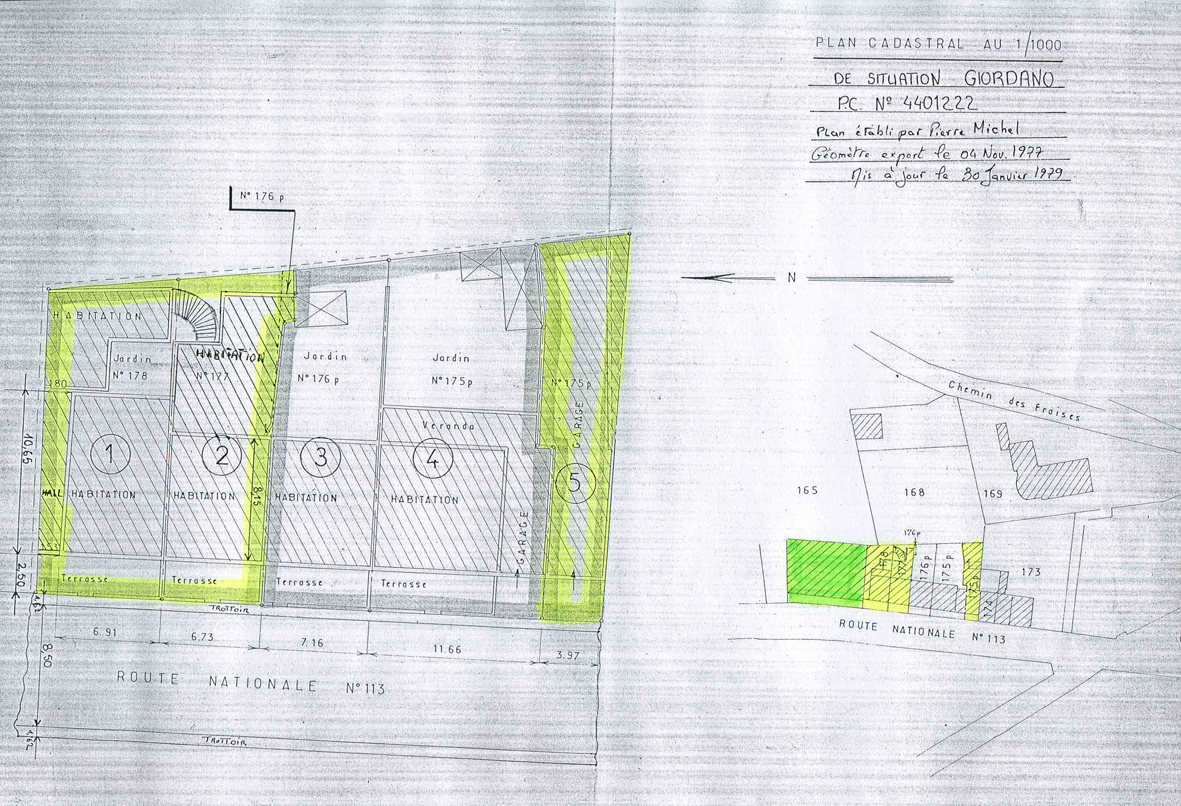 PLAN CADASTRAL AU 1/1000
DE SITUATION GIORDANO
P.C. Nº 4401222
Plan établi par Pierre Michel
Géomètre expert le 04 Nov. 1977
Mis à jour le 30 Janvier 1979
Nº 176 p
N
HABITATION
Jardin
Nº 178
HABITATION
Nº 177
Jardin
Nº 176 p
Jardin
Nº 175 p
Nº 175 p
GARAGE
1.80
10.65
Veranda
1
2
3
4
5
HALL
HABITATION
HABITATION
8.15
HABITATION
HABITATION
GARAGE
2.50
Terrasse
Terrasse
Terrasse
Terrasse
TROTTOIR
6.91
6.73
7.16
11.66
3.97
8.50
ROUTE NATIONALE Nº 113
TROTTOIR
Chemin des Fraises
165
168
169
176 p
178
177
176 p
175 p
175 p
174
173
ROUTE NATIONALE Nº 113